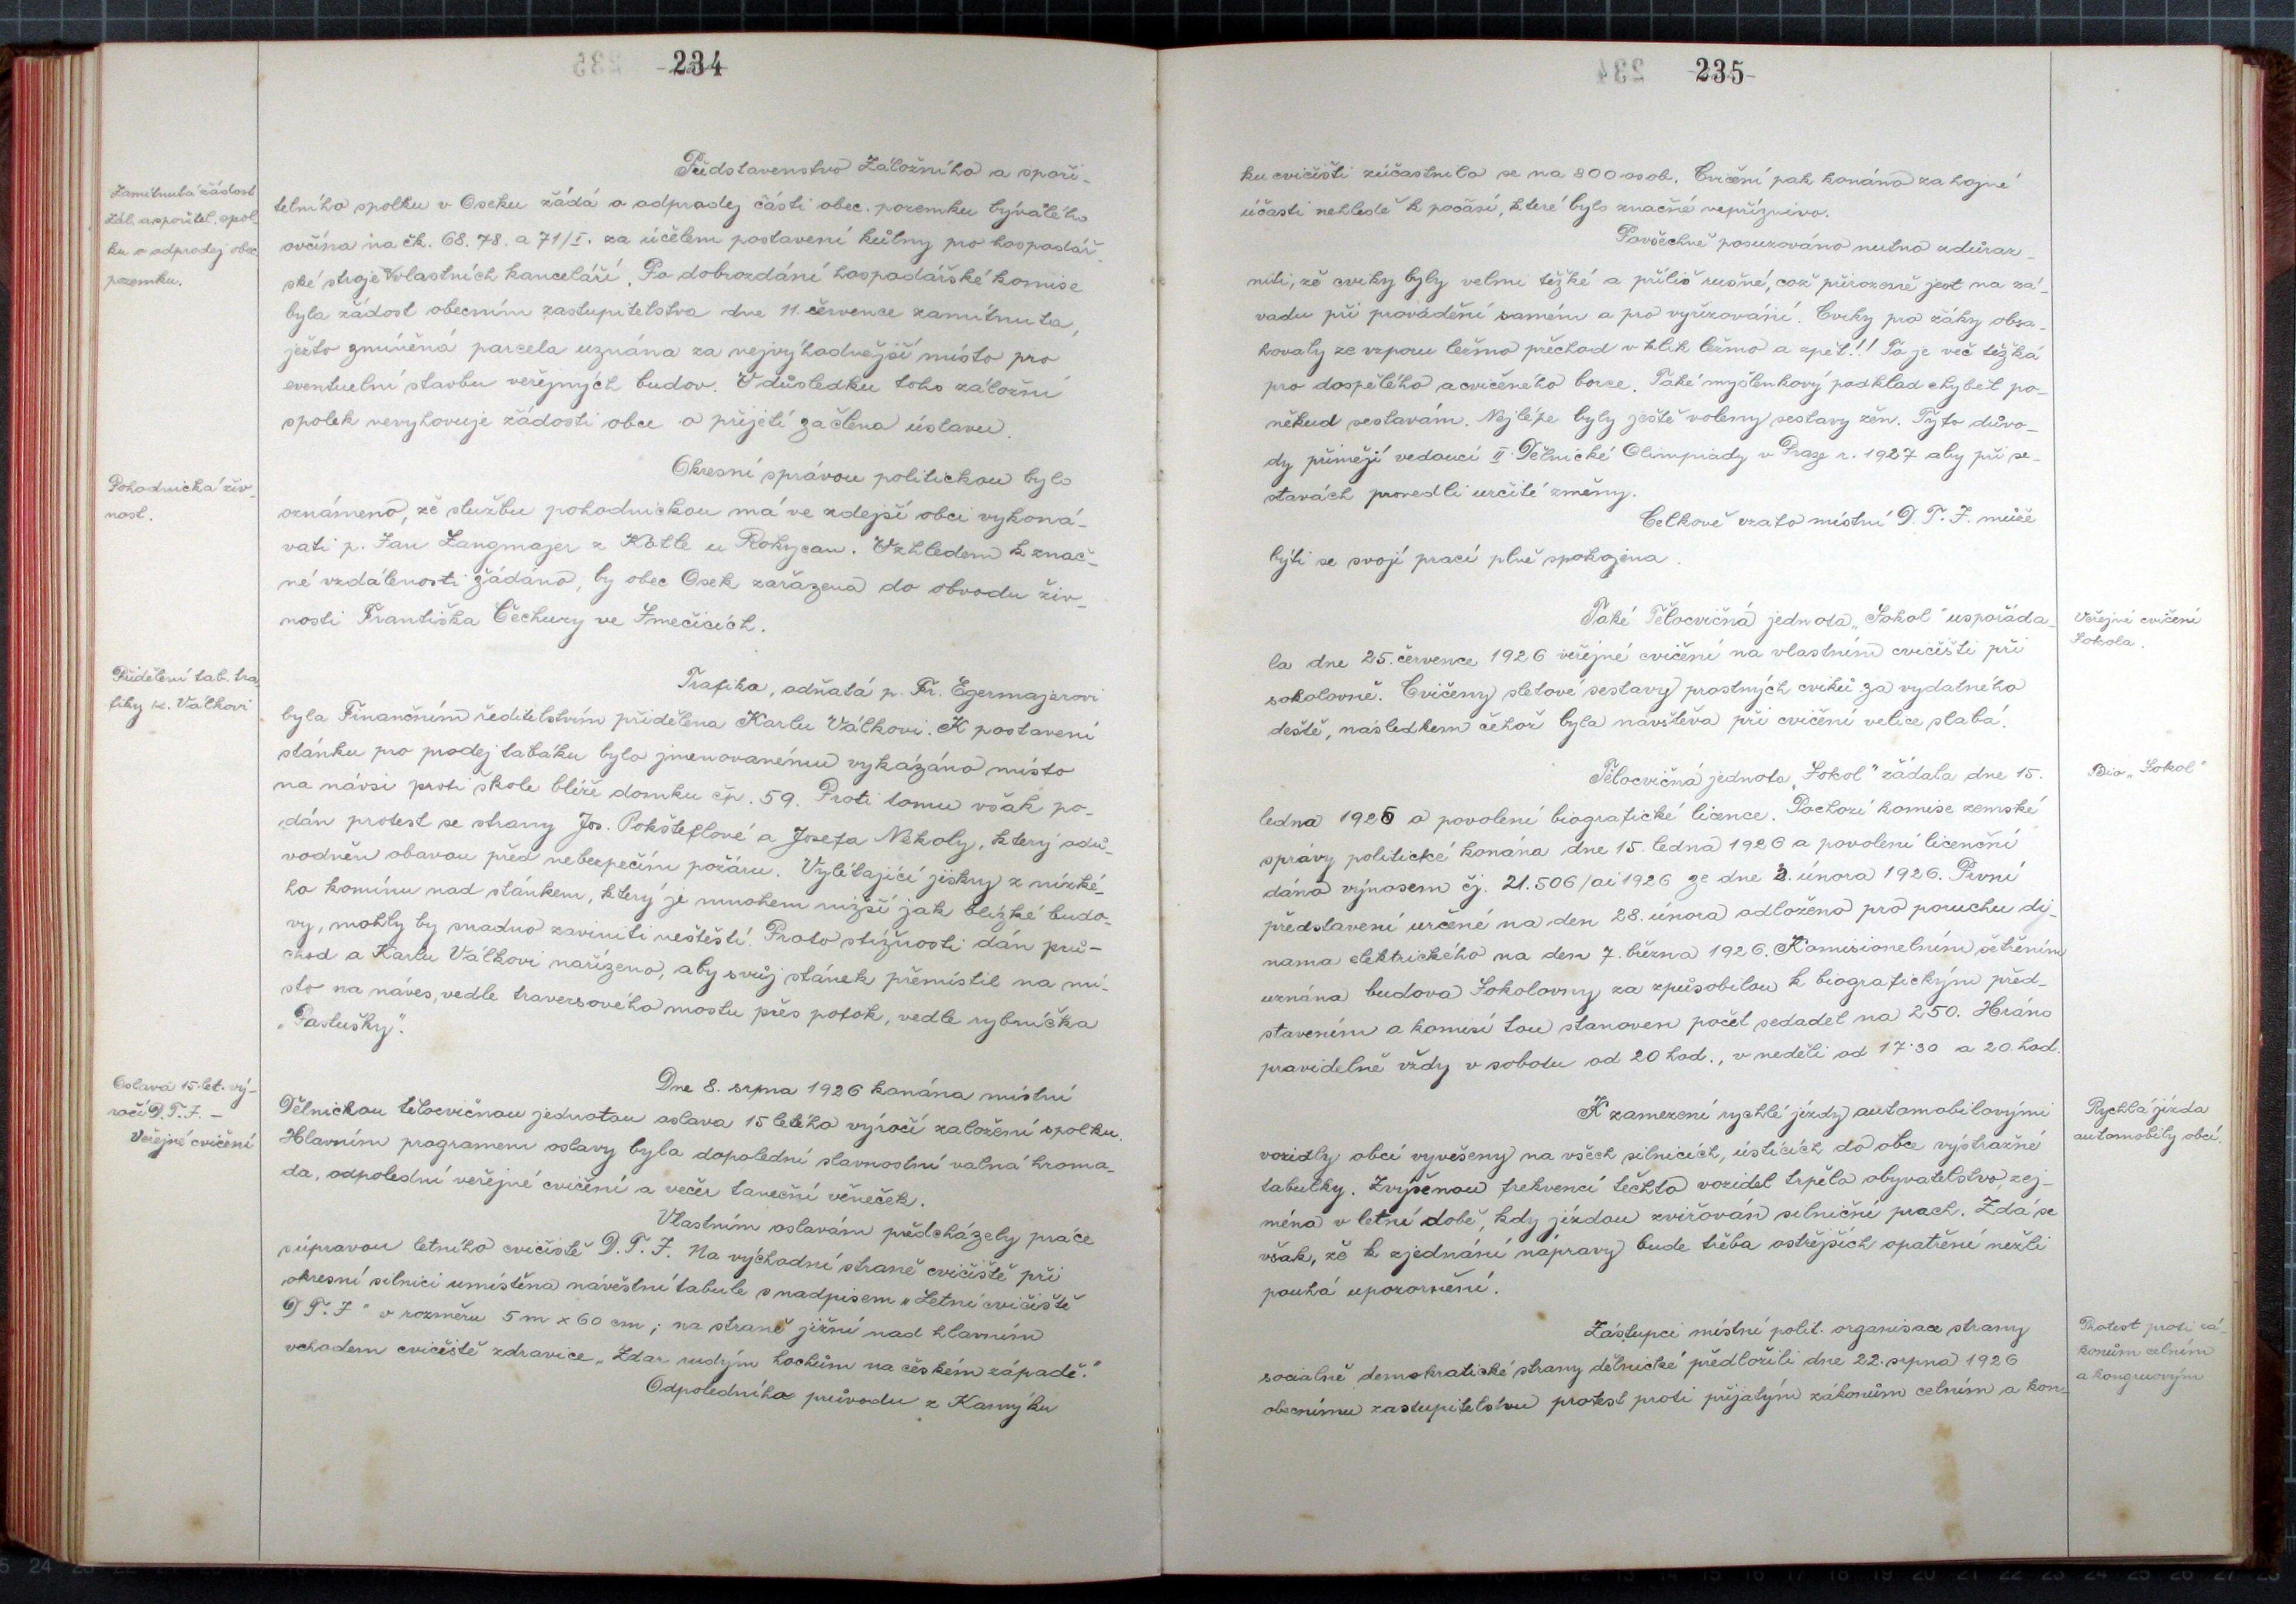 234
Zamítnutá žádost
zál. a spořitel. spol-
ku o odprodej obec.
pozemku.
Představenstvo Záložního a spoři-
telního spolku v Oseku žádá o odprodej části obec. pozemku bývalého
ovčína na čk. 68. 78. a 71/I. za účelem postavení kůlny pro hospodář-
ské stroje vlastních kanceláří. Po dobrozdání hospodářské komise
byla žádost obecním zastupitelstva dne 11. července zamítnuta,
ježto zmíněná parcela uznána za nejvýhodnější místo pro
eventuelní stavbu veřejných budov. V důsledku toho záložní
spolek nevyhovuje žádosti obce o přijetí za člena ústavu.
Pohodnická živ-
nost.
Okresní správou politickou bylo
oznámeno, že službu pohodnickou má ve zdejší obci vykoná-
vati p. Jan Langmajer z Kotle u Rokycan. Vzhledem k znač-
né vzdálenosti žádáno, by obec Osek zařazena do obvodu živ-
nosti Františka Čechury ve Smečicích.
Přidělení tab. tra-
fiky K. Válkovi
Trafika, odňatá p. Fr. Egermajerovi
byla Finančním ředitelstvím přidělena Karlu Válkovi. K postavení
stánku pro prodej tabáku bylo jmenovanému vykázáno místo
na návsi proti škole blíže domku čp. 59. Proti tomu však po-
dán protest se strany Jos. Pokšteflové a Josefa Nekoly, který odů-
vodněn obavou před nebezpečím požáru. Vylétající jiskry z nízké-
ho komínu nad stánkem, který je mnohem nižší jak blízké budo-
vy, mohly by snadno zaviniti neštěstí. Proto stížnosti dán prů-
chod a Karlu Válkovi nařízeno, aby svůj stánek přemístil na mí-
sto na náves, vedle traversového mostu přes potok, vedle rybníčka
„Pastušky".
Oslava 15-let. vý-
ročí D. T. J. –
Veřejné cvičení
Dne 8. srpna 1926 konána místní
Dělnickou tělocvičnou jednotou oslava 15 letého výročí založení spolku.
Hlavním programem oslavy byla dopolední slavnostní valná hroma-
da, odpolední veřejné cvičení a večer taneční věneček.
Vlastním oslavám předcházely práce
s úpravou letního cvičiště D. T. J. Na východní straně cvičiště při
okresní silnici umístěna návěstní tabule s nadpisem „Letní cvičiště
D T. J" v rozměru 5 m × 60 cm; na straně jižní nad hlavním
vchodem cvičiště zdravice „Zdar rudým hochům na českém západě."
Odpoledního průvodu z Kamýku
235
ku cvičišti zúčastnilo se na 800 osob. Cvičení pak konáno za hojné
účasti nehledě k počasí, které bylo značně nepříznivo.
Povšechně posuzováno nutno zdůraz-
niti, že cviky byly velmi těžké a příliš rušné, což přirozeně jest na zá-
vadu při provádění samém a pro vyřizování. Cviky pro žáky obsa-
hovaly ze vzporu ležmo přechod v klik ležmo a zpět!! To je věc těžká
pro dospělého a cvičeného borce. Také myšlenkový podklad chyběl po-
někud sestavám. Nejlépe byly ještě voleny sestavy žen. Tyto důvo-
dy přimějí vedoucí II Dělnické Olimpiady v Praze r. 1927 aby při se-
stavách provedli určité změny.
Celkově vzato místní D. T. J. může
býti se svojí prací plně spokojena.
Také Tělocvičná jednota „Sokol" uspořáda-
la dne 25. července 1926 veřejné cvičení na vlastním cvičišti při
sokolovně. Cvičeny sletové sestavy prostných cviků za vydatného
deště, následkem čehož byla návštěva při cvičení velice slabá.
Veřejné cvičení
Sokola.
Tělocvičná jednota „Sokol" žádala dne 15.
ledna 1926 o povolení biografické licence. Pochozí komise zemské
správy politické konána dne 15. ledna 1926 a povolení licenční
dáno výnosem čj. 21.506/ai 1926 ze dne 3. února 1926. První
představení určené na den 28. února odloženo pro poruchu dy-
nama elektrického na den 7. března 1926. Komisionelním šetřením
uznána budova Sokolovny za způsobilou k biografickým před-
stavením a komisí tou stanoven počet sedadel na 250. Hráno
pravidelně vždy v sobotu od 20 hod., v neděli od 17·30 a 20. hod.
Bio „Sokol"
K zamezení rychlé jízdy automobilovými
vozidly obcí vyvěšeny na všech silnicích, ústících do obce výstražné
tabulky. Zvýšenou frekvencí těchto vozidel trpělo obyvatelstvo, zej-
ména v letní době, kdy jízdou zviřován silniční prach. Zdá se
však, že k zjednání nápravy bude třeba ostřejších opatření nežli
pouhá upozornění.
Rychlá jízda
automobily obcí.
Zástupci místní polit. organisace strany
socialně demokratické strany dělnické předložili dne 22. srpna 1926
obecnímu zastupitelstvu protest proti přijatým zákonům celním a kon-
Protest proti zá-
konům celním
a kongruovým